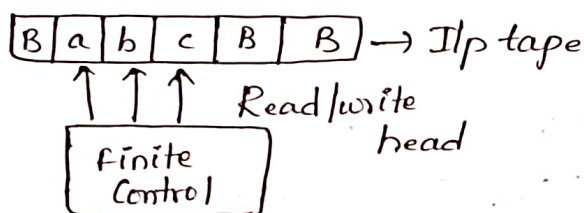 B a b c B B → I/p tape
Read/write
head
finite
Control